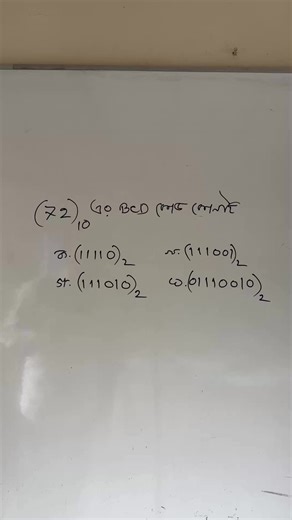 (72)₁₀ এর BCD কোড কোনটি
ক. (11110)₂ খ. (111001)₂
গ. (111010)₂ ঘ. (01110010)₂